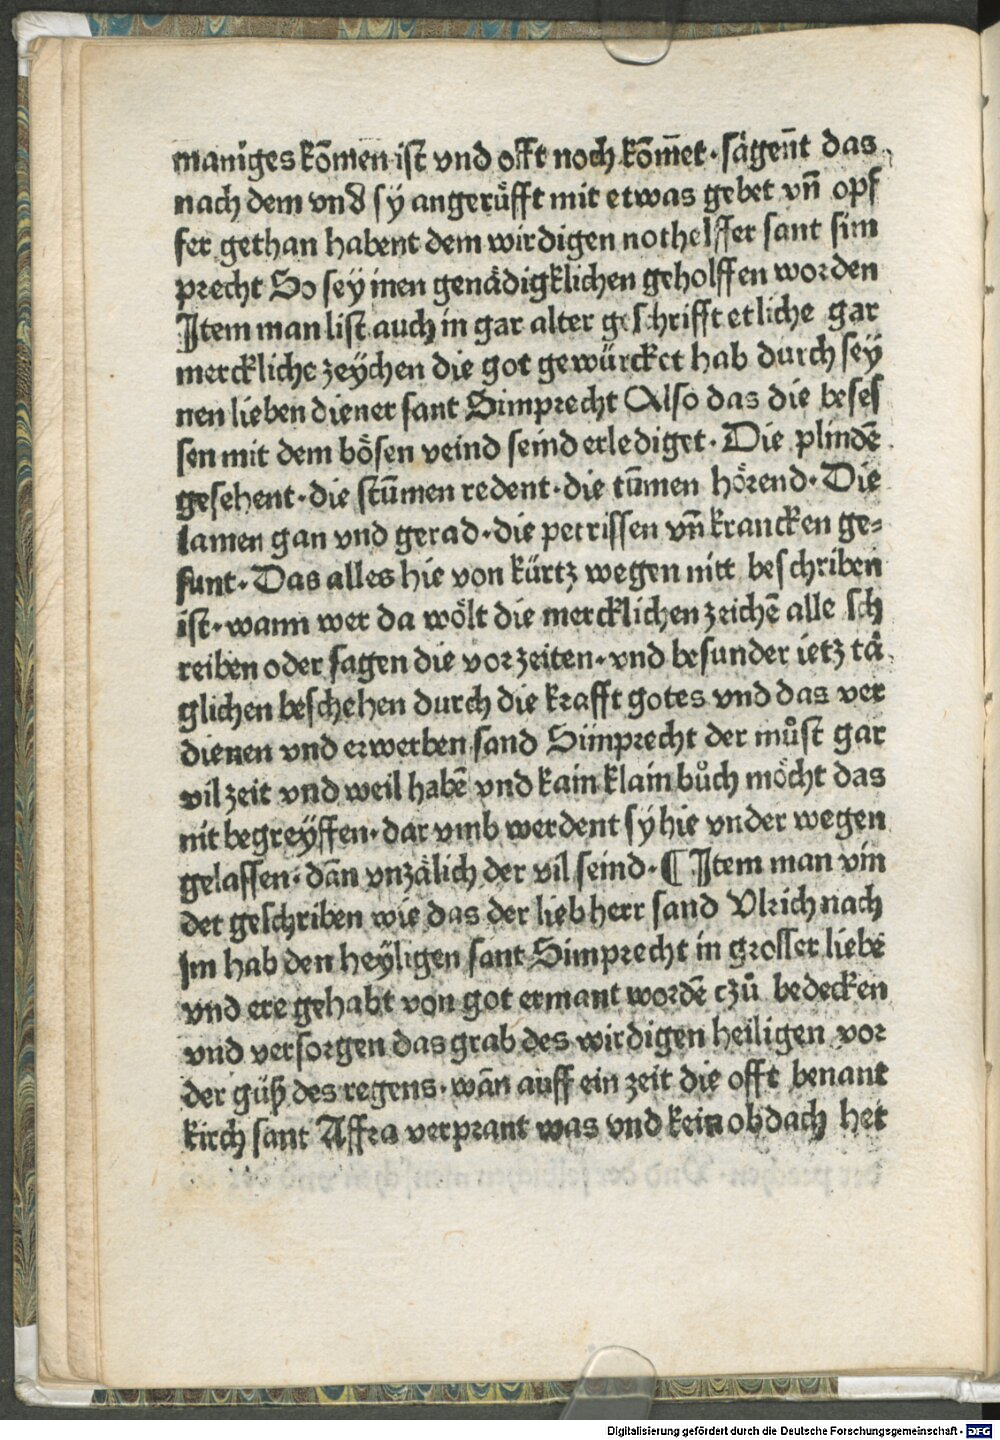 maniges kōmen ist vnd offt noch kōm̄et · sägen̄t das
nach dem vnd sy angerůfft mit etwas gebet vn̄ opf
fer gethan habent dem wirdigen nothelffer sant sim
precht So sey inen genädigklichen geholffen worden
Item man list auch in gar alter geschrifft etliche gar
merckliche zeychen die got gewürcket hab durch sey
nen lieben diener sant Simprecht Also das die beses
sen mit dem bösen veind seind erlediget · Die plindē
gesehent · die stūmen redent · die tūmen hörend · Die
lamen gan vnd gerad · die petrissen vn̄ krancken ge=
sunt · Das alles hie von kürtz wegen nitt beschriben
ist · wann wer da wölt die mercklichen zeichē alle sch
reiben oder sagen die vor zeiten · vnd besunder ietz tä
glichen beschehen durch die krafft gotes vnd das ver
dienen vnd erwerben sand Simprecht der můst gar
vil zeit vnd weil habē vnd kain klain bůch möcht das
nit begreyffen · dar vmb werdent sy hie vnder wegen
gelassen · dān vnzälich der vil seind · ¶ Item man vin
det geschriben wie das der lieb herr sand Vlrich nach
im hab den heyligen sant Simprecht in grosser liebe
vnd ere gehabt von got ermant wordē czů bedecken
vnd versorgen das grab des wirdigen heiligen vor
der güß des regens · wān auff ein zeit die offt benant
kirch sant Affra verprant was vnd kein obdach het
Digitalisierung gefördert durch die Deutsche Forschungsgemeinschaft - DFG